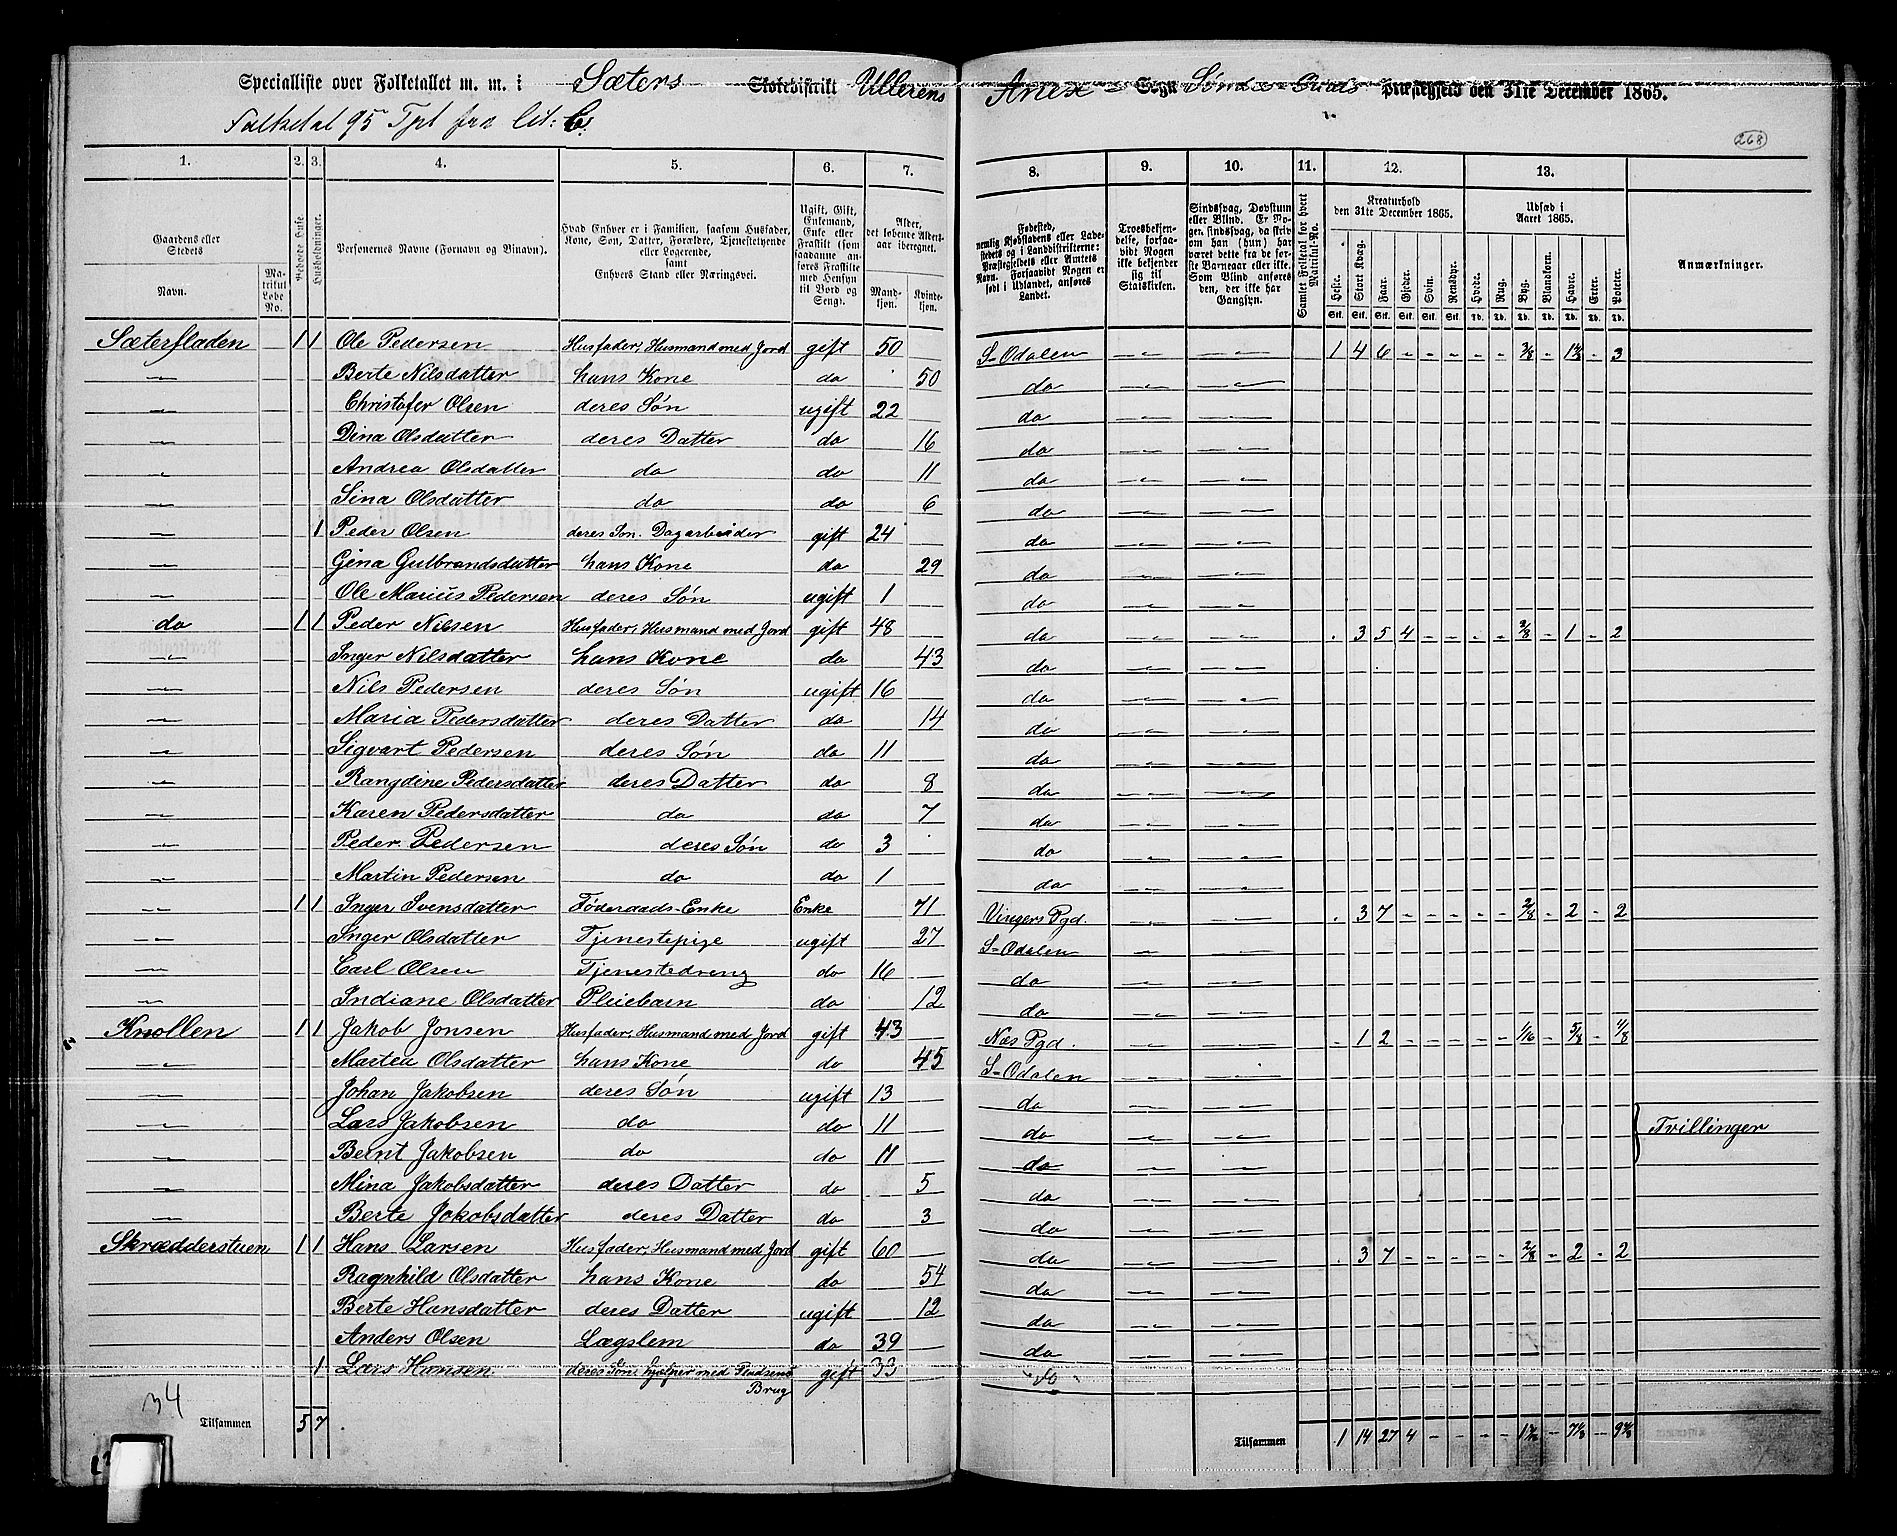 Specialliste over Folketallet m. m. i Sæters Skoledistrikt Ullerens Anex Sogn Søndre Præstegjeld den 31te December 1865.
Folketal 95 Tpt fra lit: C.
268
1. 2. 3. 4. 5. 6. 7. 8. 9. 10. 11. 12. 13.
Gaardens eller Stedets
Navn.
Matrikul Løbe No.
Beboede Huse.
Husholdninger.
Personernes Navne (Fornavn og Binavn).
Hvad Enhver er i Familien, saasom Husfader, Kone, Søn, Datter, Forældre, Tjenestetyende eller Logerende, samt Enhvers Stand eller Næringsvei.
Ugift, Gift, Enkemand, Enke eller Fraskilt (som saadanne anføres Fraskilte med Hensyn til Bord og Seng).
Alder, det løbende Aldersaar iberegnet.
Mandkjøn. Kvindekjøn.
Fødested, nemlig Kjøbstadens eller Ladestedets og i Landdistrikterne: Præstegjeldets eller Amtets Navn. Forsaavidt Nogen er født i Udlandet, anføres Landet.
Troesbekjendelse, forsaavidt Nogen ikke bekjender sig til Statskirken.
Sindssvag, Døvstum eller Blind. Er Nogen sindssvag, da skriv om han (hun) har været dette fra de første Barneaar eller ikke. Som Blind anføres den, der ikke har Gangsyn.
Samlet Folketal for hvert Matrikul-No.
Kreaturhold den 31te December 1865.
Heste. Stort Kvæg. Faar. Gjeder. Svin. Rensdyr.
Udsæd i Aaret 1865.
Hvede. Rug. Byg. Blandkorn. Havre. Erter. Poteter.
Anmærkninger.
Sæterfladen 1 1 Ole Pedersen Husfader, Husmand med Jord gift 50 S-Odalen 1 4 6 - - - - - 3/8 - - 3
Berte Nilsdatter hans Kone do 50 do
Christofer Olsen deres Søn ugift 22 do
Dina Olsdatter deres Datter do 16 do
Andrea Olsdatter do do 11 do
Sina Olsdatter do do 6 do
1 Peder Olsen deres Søn. Dagarbeider gift 24 do
Gina Gulbrandsdatter hans Kone do 29 do
Ole Marius Pedersen deres Søn ugift 1 do
do 1 1 Peder Nilsen Husfader, Husmand med Jord gift 48 do 3 5 4 - - - - 2/8 - 1 - 2
Inger Nilsdatter hans Kone do 43 do
Nils Pedersen deres Søn ugift 16 do
Maria Pedersdatter deres Datter do 14 do
Sigvart Pedersen deres Søn do 11 do
Rangdine Pedersdatter deres Datter do 8 do
Karen Pedersdatter do do 7 do
Peder Pedersen deres Søn do 3 do
Martin Pedersen do do 1 do
1 1 Inger Svensdatter Föderaads-Enke Enke 71 Vingers Pgd 3 7 - - - - - 2/8 - 2 - 2
Inger Olsdatter Tjenestepige ugift 27 S-Odalen
Carl Olsen Tjenestedreng do 16 do
Indiane Olsdatter Pleiebarn do 12 do
Knollen 1 1 Jakob Jonsen Husfader, Husmand med Jord gift 43 Næs Pgd. 1 2 - - - - - 1/16 - 5/8 -
Martea Olsdatter hans Kone do 45 S-Odalen
Johan Jakobsen deres Søn ugift 13 do
Lars Jakobsen do do 11 do Tvillinger
Bernt Jakobsen do do 11 do
Mina Jakobsdatter deres Datter do 5 do
Berte Jakobsdatter deres Datter do 3 do
Skrædderstuen 1 1 Hans Larsen Husfader, Husmand med Jord gift 60 do 3 7 - - - - - 2/8 - 2 - 2
Ragnhild Olsdatter hans Kone do 54 do
Berte Hansdatter deres Datter ugift 12 do
Anders Olsen Lægslem do 39 do
1 Lars Hansen deres Søn, hjælper med Pladsens Brug gift 33 do
34
Tilsammen 5 7 Tilsammen 1 14 27 4